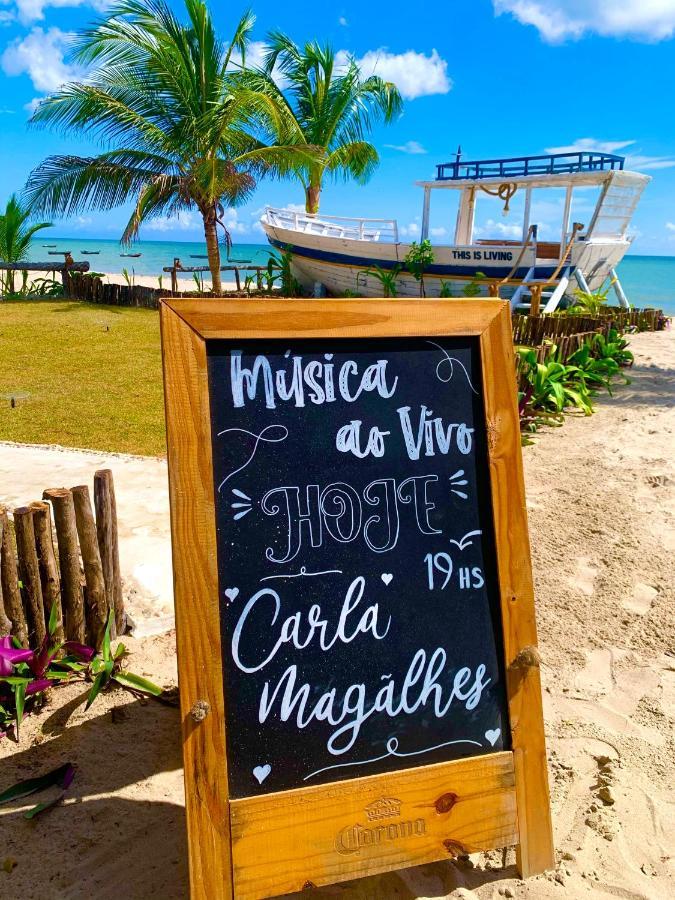 THIS IS LIVING
Música
ao Vivo
HOJE
19HS
Carla
Magalhes
Corona